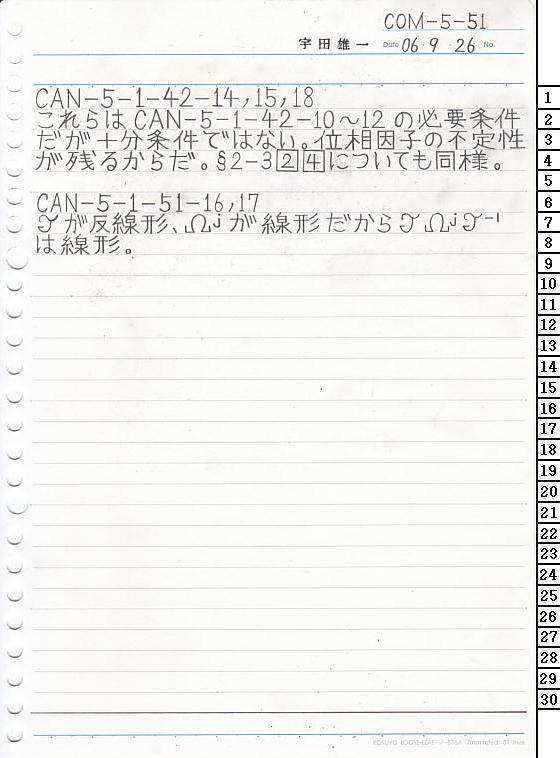 COM-5-51
宇田雄一 Date 06・9・26 No.
CAN-5-1-42-14,15,18
これらは CAN-5-1-42-10〜12 の必要条件
だが十分条件ではない。位相因子の不定性
が残るからだ。§2-3 2 4 についても同様。
CAN-5-1-51-16,17
𝒯が反線形、Ωʲが線形だから𝒯Ωʲ𝒯⁻¹
は線形。
KOKUYO LOOSE-LEAF ノ-836A 7mm ruled 31 lines
1
2
3
4
5
6
7
8
9
10
11
12
13
14
15
16
17
18
19
20
21
22
23
24
25
26
27
28
29
30